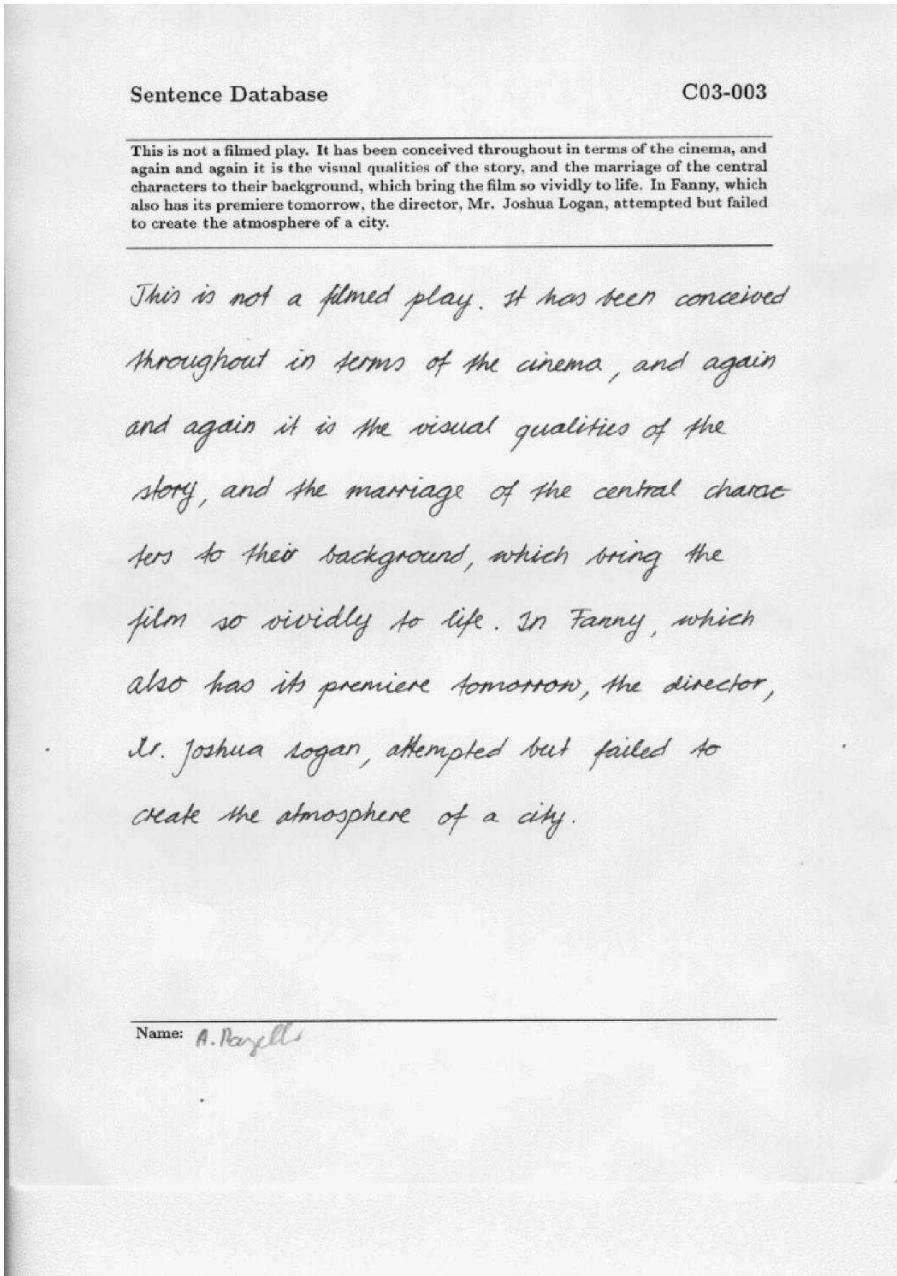 Sentence Database C03-003
This is not a filmed play. It has been conceived throughout in terms of the cinema, and
again and again it is the visual qualities of the story, and the marriage of the central
characters to their background, which bring the film so vividly to life. In Fanny, which
also has its premiere tomorrow, the director, Mr. Joshua Logan, attempted but failed
to create the atmosphere of a city.
This is not a filmed play. It has been conceived
throughout in terms of the cinema, and again
and again it is the visual qualities of the
story, and the marriage of the central charac-
ters to their background, which bring the
film so vividly to life. In Fanny, which
also has its premiere tomorrow, the director,
Mr. Joshua Logan, attempted but failed to
create the atmosphere of a city.
Name: A.